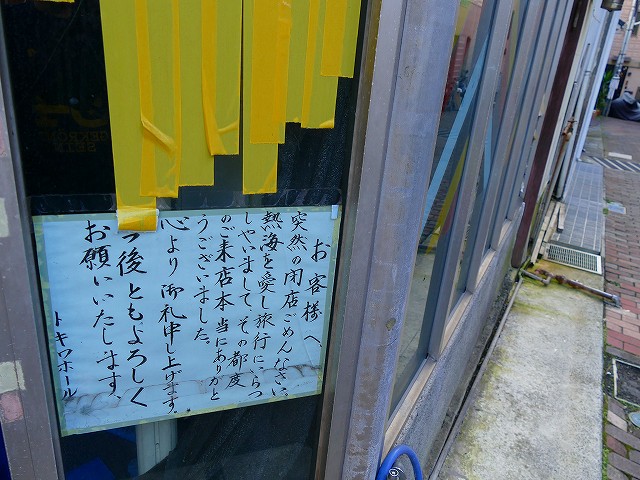 お客様へ
突然の閉店ごめんなさい。
熱海を愛し旅行にいらつ
しゃいまして、その都度
のご来店本当にありがと
うございました。
心より御礼申し上げます。
後ともよろしく
お願いいたします、
トキワホール